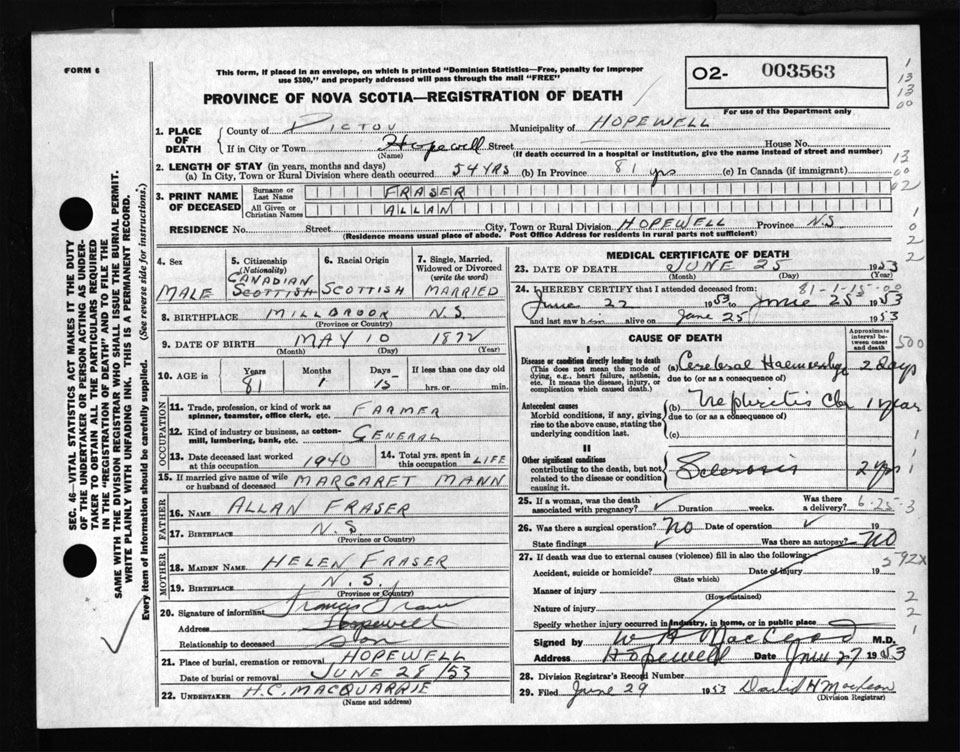 FORM 6
This form, if placed in an envelope, on which is printed "Dominion Statistics—Free, penalty for improper use $300," and properly addressed will pass through the mail "FREE"
O2- 003563
For use of the Department only
PROVINCE OF NOVA SCOTIA—REGISTRATION OF DEATH
1. PLACE OF DEATH
County of PICTOU Municipality of HOPEWELL
If in City or Town Hopewell Street House No.
(Name) (If death occurred in a hospital or institution, give the name instead of street and number)
2. LENGTH OF STAY (in years, months and days)
(a) In City, Town or Rural Division where death occurred 54 YRS (b) In Province 81 yrs (c) In Canada (if immigrant)
3. PRINT NAME OF DECEASED
Surname or Last Name FRASER
All Given or Christian Names ALLAN
RESIDENCE No. Street City, Town or Rural Division HOPEWELL Province N.S.
(Residence means usual place of abode. Post Office Address for residents in rural parts not sufficient)
4. Sex MALE
5. Citizenship (Nationality) CANADIAN SCOTTISH
6. Racial Origin SCOTTISH
7. Single, Married, Widowed or Divorced (write the word) MARRIED
8. BIRTHPLACE MILLBROOK N.S.
(Province or Country)
9. DATE OF BIRTH MAY 10 1872
(Month) (Day) (Year)
10. AGE in Years 81 Months 1 Days 15 If less than one day old hrs. or min.
OCCUPATION
11. Trade, profession, or kind of work as spinner, teamster, office clerk, etc. FARMER
12. Kind of industry or business, as cotton-mill, lumbering, bank, etc. GENERAL
13. Date deceased last worked at this occupation 1940
14. Total yrs. spent in this occupation LIFE
15. If married give name of wife or husband of deceased MARGARET MANN
FATHER
16. NAME ALLAN FRASER
17. BIRTHPLACE N.S.
(Province or Country)
MOTHER
18. MAIDEN NAME HELEN FRASER
19. BIRTHPLACE N.S.
(Province or Country)
20. Signature of informant Francis Fraser
Address Hopewell
Relationship to deceased Son
21. Place of burial, cremation or removal HOPEWELL
Date of burial or removal JUNE 28/53
22. UNDERTAKER H.C. MACQUARRIE
(Name and address)
MEDICAL CERTIFICATE OF DEATH
23. DATE OF DEATH JUNE 25 1953
(Month) (Day) (Year)
81-1-15-00
24. I HEREBY CERTIFY that I attended deceased from:
June 22 1953 to June 25 1953
and last saw him alive on June 25 1953
CAUSE OF DEATH
Approximate interval between onset and death
I
Disease or condition directly leading to death
(This does not mean the mode of dying, e.g., heart failure, asthenia, etc. It means the disease, injury, or complication which caused death.)
(a) Cerebral Haemorrhage 2 days
due to (or as a consequence of)
Antecedent causes
Morbid conditions, if any, giving rise to the above cause, stating the underlying condition last.
(b) Nephritis 1 year
due to (or as a consequence of)
(c)
II
Other significant conditions contributing to the death, but not related to the disease or condition causing it.
Sclerosis 2 yrs
25. If a woman, was the death associated with pregnancy? Duration weeks. Was there a delivery? 6-25-3
26. Was there a surgical operation? NO Date of operation 19
State findings Was there an autopsy? NO
27. If death was due to external causes (violence) fill in also the following:
592X
Accident, suicide or homicide? Date of injury 19
(State which)
Manner of injury
(How sustained)
Nature of injury
Specify whether injury occurred in industry, in home, or in public place
Signed by W H MacLeod M.D.
Address Hopewell Date June 27 1953
28. Division Registrar's Record Number
29. Filed June 29 1953 David H MacLean
(Division Registrar)
SEC. 46—VITAL STATISTICS ACT MAKES IT THE DUTY OF THE UNDERTAKER OR PERSON ACTING AS UNDERTAKER TO OBTAIN ALL THE PARTICULARS REQUIRED IN THE "REGISTRATION OF DEATH" AND TO FILE THE SAME WITH THE DIVISION REGISTRAR WHO SHALL ISSUE THE BURIAL PERMIT.
WRITE PLAINLY WITH UNFADING INK. THIS IS A PERMANENT RECORD.
Every item of information should be carefully supplied. (See reverse side for instructions.)
1
13
13
00
13
00
02
1
0
2
2
500
1
1
2
2
1